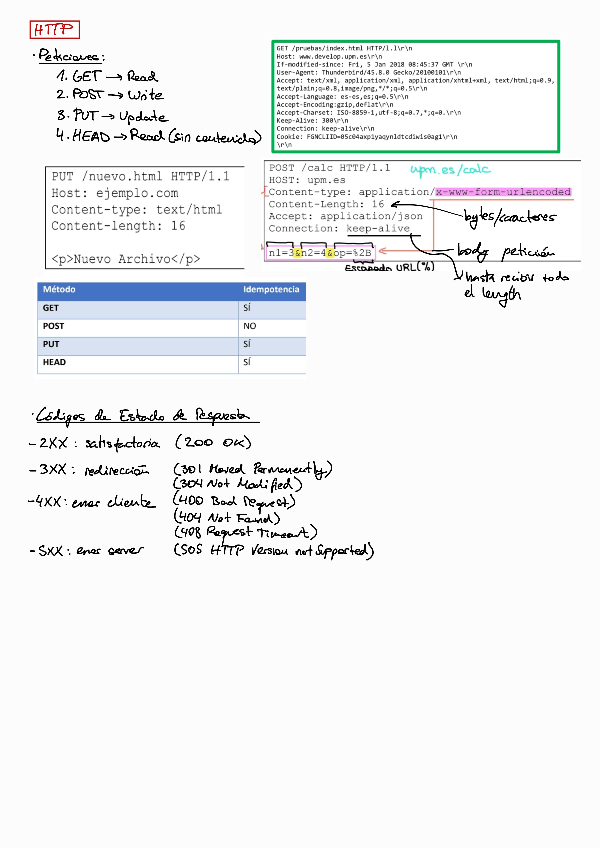 HTTP
· Peticiones:
1. GET → Read
2. POST → Write
3. PUT → Update
4. HEAD → Read (sin contenido)
GET /pruebas/index.html HTTP/1.1\r\n
Host: www.develop.upm.es\r\n
If-modified-since: Fri, 5 Jan 2018 08:45:37 GMT \r\n
User-Agent: Thunderbird/45.8.0 Gecko/20100101\r\n
Accept: text/xml, application/xml, application/xhtml+xml, text/html;q=0.9,
text/plain;q=0.8,image/png,*/*;q=0.5\r\n
Accept-Language: es-es,es;q=0.5\r\n
Accept-Encoding:gzip,deflat\r\n
Accept-Charset: ISO-8859-1,utf-8;q=0.7,*;q=0.\r\n
Keep-Alive: 300\r\n
Connection: keep-alive\r\n
Cookie: FGNCLIID=05c04axpiyaqynldtcdiwis0ag1\r\n
\r\n
PUT /nuevo.html HTTP/1.1
Host: ejemplo.com
Content-type: text/html
Content-length: 16
<p>Nuevo Archivo</p>
POST /calc HTTP/1.1 upm.es/calc
HOST: upm.es
Content-type: application/x-www-form-urlencoded
Content-Length: 16
bytes/caracteres
Accept: application/json
Connection: keep-alive
n1=3&n2=4&op=%2B
body petición
Escapado URL(%)
hasta recibir todo
el length
Método Idempotencia
GET SÍ
POST NO
PUT SÍ
HEAD SÍ
· Códigos de Estado de Respuesta
- 2XX : satisfactoria (200 OK)
- 3XX : redirección (301 Moved Permanently)
(304 Not Modified)
- 4XX : error cliente (400 Bad Request)
(404 Not Found)
(408 Request Timeout)
- 5XX : error server (505 HTTP Version not Supported)